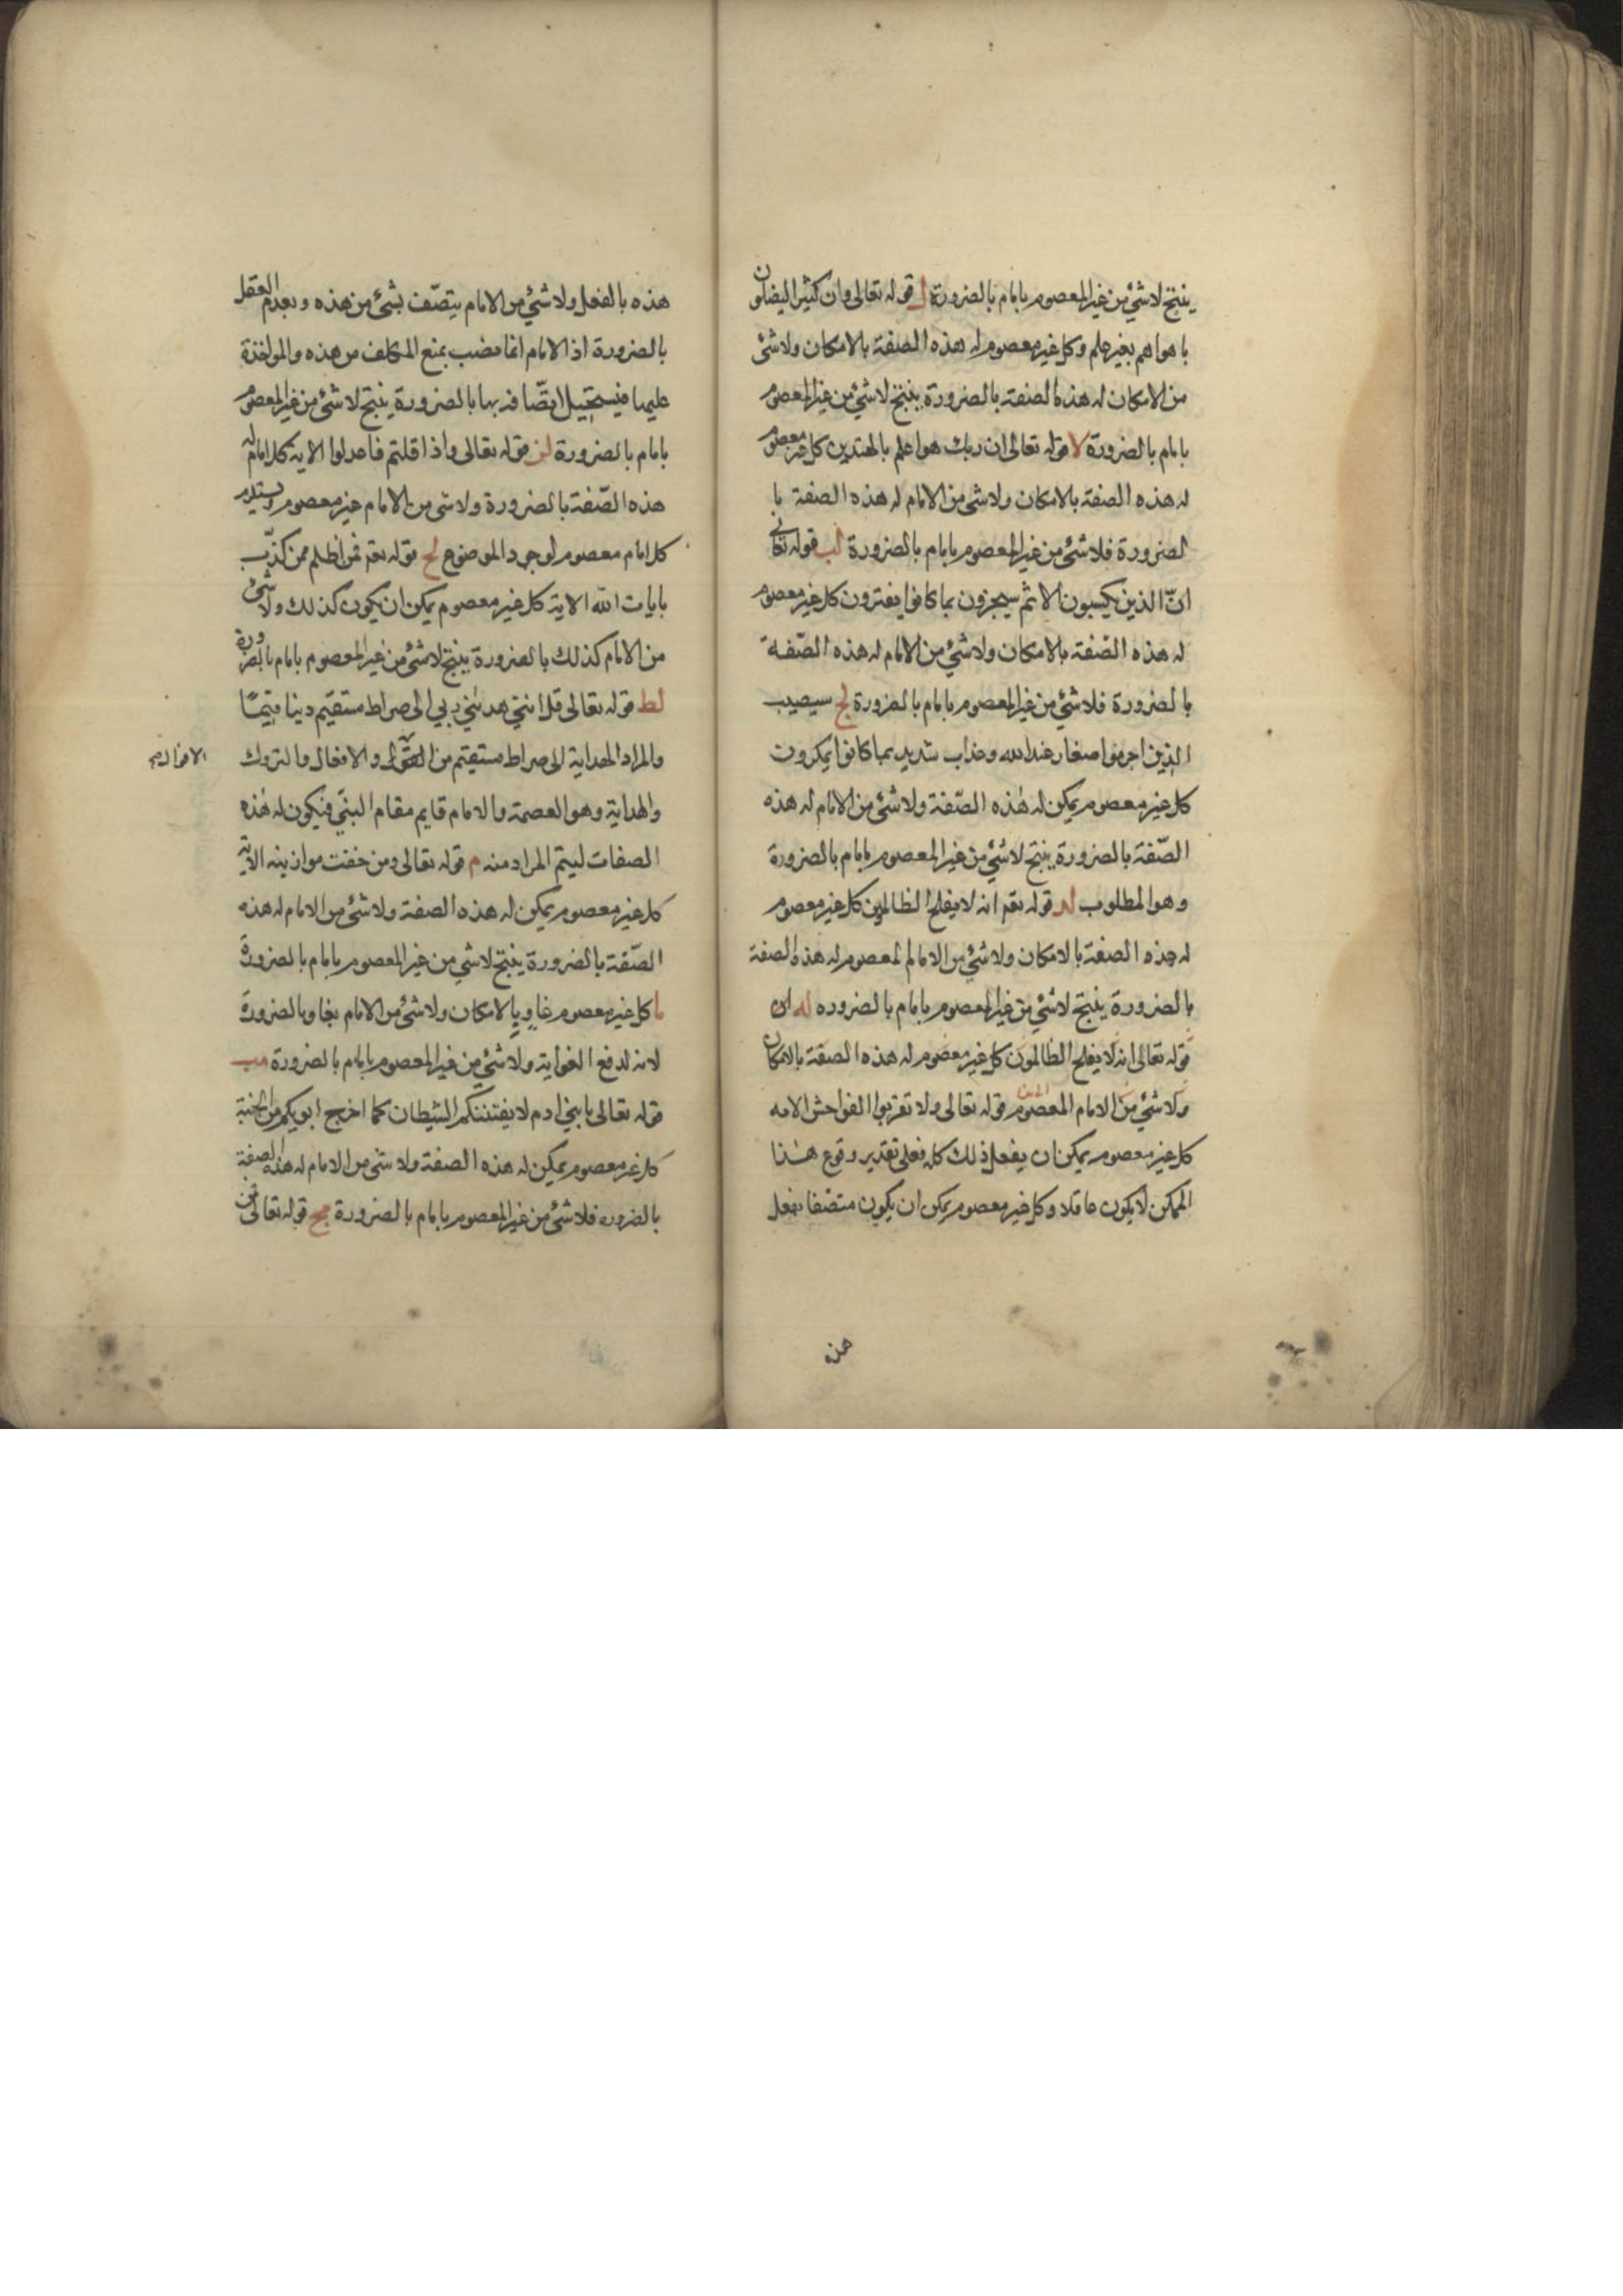 ينتج لا شئ من غير المعصوم بامام بالضرورة ل قوله تعالى وان كثيرا ليضلون
باهواهم بغير علم وكل غير معصوم له هذه الصفة بالامكان ولا شئ
من الامكان له هذه الصفة بالضرورة ينتج لا شئ من غير المعصوم
بامام بالضرورة لا قوله تعالى ان ربك هو اعلم بالمهتدين كل غير معصوم
له هذه الصفة بالامكان ولا شئ من الامام له هذه الصفة با
لضرورة فلا شئ من غير المعصوم بامام بالضرورة لب قوله تعالى
انّ الذين يكسبون الاثم سيجزون بما كانوا يفترون كل غير معصوم
له هذه الصّفة بالامكان ولا شئ من الامام له هذه الصّفة
بالضرورة فلا شئ من غير المعصوم بامام بالضرورة لج سيصيب
الذين اجرموا صغار عند الله وعذاب شديد بما كانوا يمكرون
كل غير معصوم يمكن له هذه الصّفة ولا شئ من الامام له هذه
الصّفة بالضرورة ينتج لا شئ من غير المعصوم بامام بالضرورة
وهو المطلوب لد قوله تعم انه لا يفلح الظالمين كل غير معصوم
له هذه الصفة بالامكان ولا شئ من الامام لمعصوم له هذه الصفة
بالضرورة ينتج لا شئ من غير المعصوم بامام بالضروره له
قوله تعالى انه لا يفلح الظالمون كل غير معصوم له هذه الصفة بالامكان
ولا شئ من الامام المعصوم قوله تعالى ولا تقربوا الفواحش الامه
كل غير معصوم يمكن ان يفعل ذلك كله فعلى تقدير وقوع هذا
الممكن لا يكون عاقلا وكل غير معصوم يمكن ان يكون متصّفا بفعل
هذه
هذه بالفعل ولا شئ من الامام يتصّف بشئ من هذه وبعدم العقل
بالضرورة اذ الامام انما نصب بمنع المكلف من هذه والمواخذة
عليها فيستحيل اتصّافه بها بالضرورة ينتج لا شئ من غير المعصوم
بامام بالضرورة لز قوله تعالى واذا قلتم فاعدلوا الايه كل امام له
هذه الصّفة بالضرورة ولا شئ من الامام غير معصوم ويستلزم
كل امام معصوم لوجود الموضوع لح قوله تعم فمن اظلم ممن كذّب
بايات الله الاية كل غير معصوم يمكن ان يكون كذلك ولا شئ
من الامام كذلك بالضرورة ينتج لا شئ من غير المعصوم بامام بالضرورة
لط قوله تعالى قل اننى هدينى ربي الى صراط مستقيم دينا قيما
والمراد الهداية الى صراط مستقيم من القول والافعال والتروك
والهداية وهو العصمة والامام قايم مقام النبي فيكون له هذه
الصفات ليتم المراد منه م قوله تعالى ومن خفت موازينه الاية
كل غير معصوم يمكن له هذه الصفة ولا شئ من الامام له هذه
الصّفة بالضرورة ينتج لا شئ من غير المعصوم بامام بالضرورة
ما كل غير معصوم غاو بالامكان ولا شئ من الامام بغاو بالضرورة
لانه لدفع الغواية ولا شئ من غير المعصوم بامام بالضرورة مب
قوله تعالى يا بني ادم لا يفتننكم الشيطان كما اخرج ابويكم من الجنة
كل غير معصوم يمكن له هذه الصفة ولا شئ من الامام له هذه الصفة
بالضروره فلا شئ من غير المعصوم بامام بالضرورة مج قوله تعالى فمن